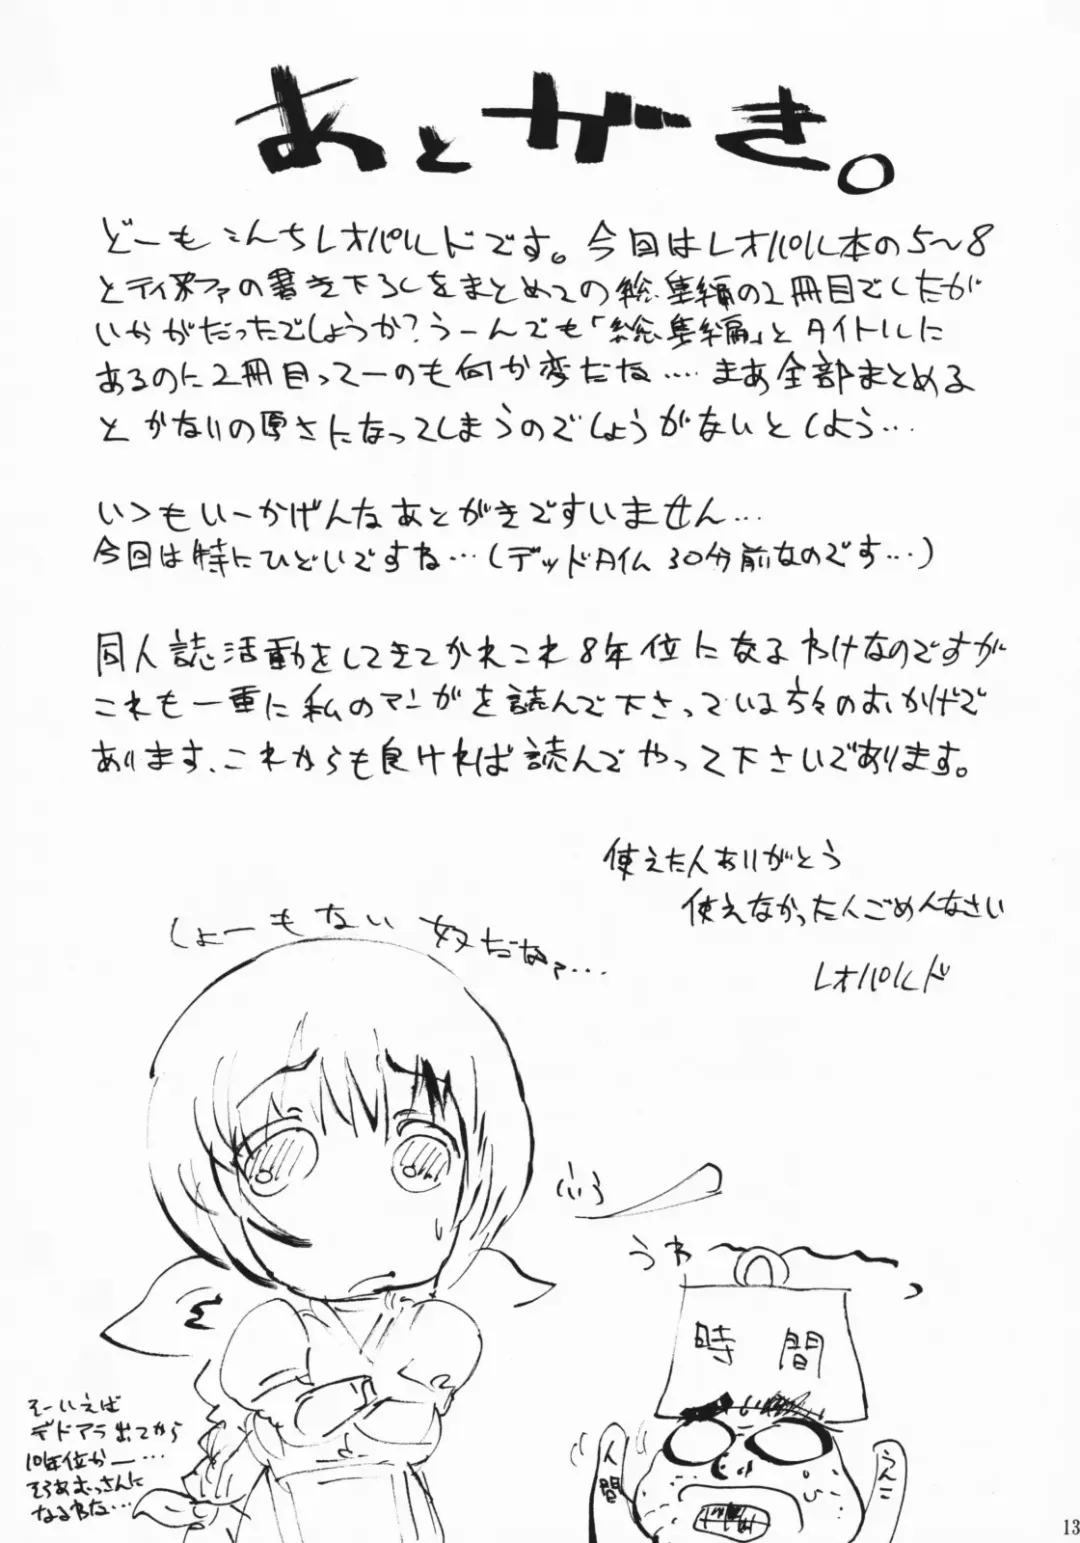 あとがき。
どーもこんちレオパルドです。今回はレオパル本の5〜8
とティファの書き下ろしをまとめての総集編の2冊目でしたが
いかがだったでしょうか?うーんでも「総集編」とタイトルに
あるのに2冊目って一のも何か変だな‥‥まあ全部まとめる
とかないの厚さになってしまうのでしょうがないとしよう…
いつもいーかげんなあとがきですいません…
今回は特にひどいですね…(デッドタイム30分前なのです…)
同人誌活動をしてきてかれこれ8年位になるわけなのですが
これも一重に私のマンガを読んで下さっている方々のおかげで
あります、これからも良ければ読んでやって下さいであります。
使えた人ありがとう
使えなかった人ごめんなさい
レオパルド
しょーもない奴だなァ…
ふぅ
うわ
時間
人間
うんこ
そーいえば
デドアラ出てから
10年位かー…
そろあむっさんに
なるわな…
13